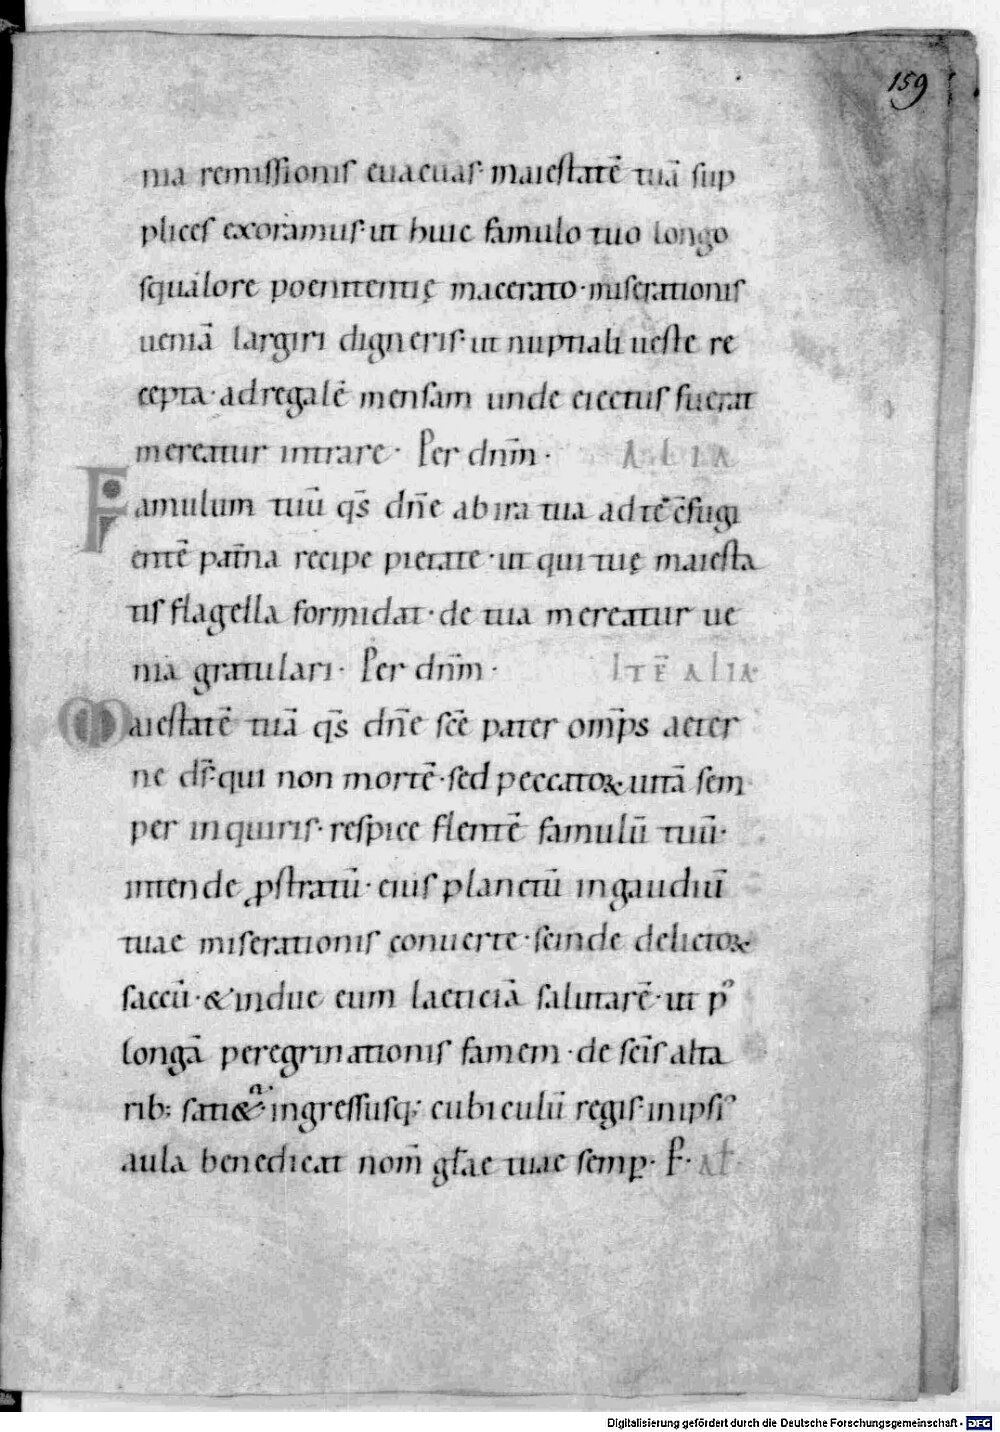 159
nia remissionis euacuas· maiestatē tuā sup
plices exoramus· ut huic famulo tuo longo
squalore poenitentię macerato· miserationis
ueniā largiri digneris· ut nuptiali ueste re
cepta· ad regalē mensam unde eiectus fuerat
mereatur intrare· Per dnm̄· ALIA
Famulum tuū qs̄ dn̄e ab ira tua ad te c̄fugi
entē patn̄a recipe pietate· ut qui tuę maiesta
tis flagella formidat· de tua mereatur ue
nia gratulari· Per dnm̄· ITĒ ALIA·
Maiestatē tuā qs̄ dn̄e sc̄e pater omp̄s aeter
ne ds̄· qui non mortē· sed peccatoꝝ uitā sem
per inquiris· respice flentē famulū tuū·
intende ꝓstratū· eius planctū in gaudiū
tuae miserationis conuerte· scinde delictoꝝ
saccū· & indue eum laeticiā salutarē· ut p᷒
longā peregrinationis famem· de sc̄is alta
rib; sati&ͣ· ingressusq; cubiculū regis· in ipsi᷒
aula benedicat nom̄ gl̄ae tuae semꝑ· P̄· AL̄·
Digitalisierung gefördert durch die Deutsche Forschungsgemeinschaft - DFG